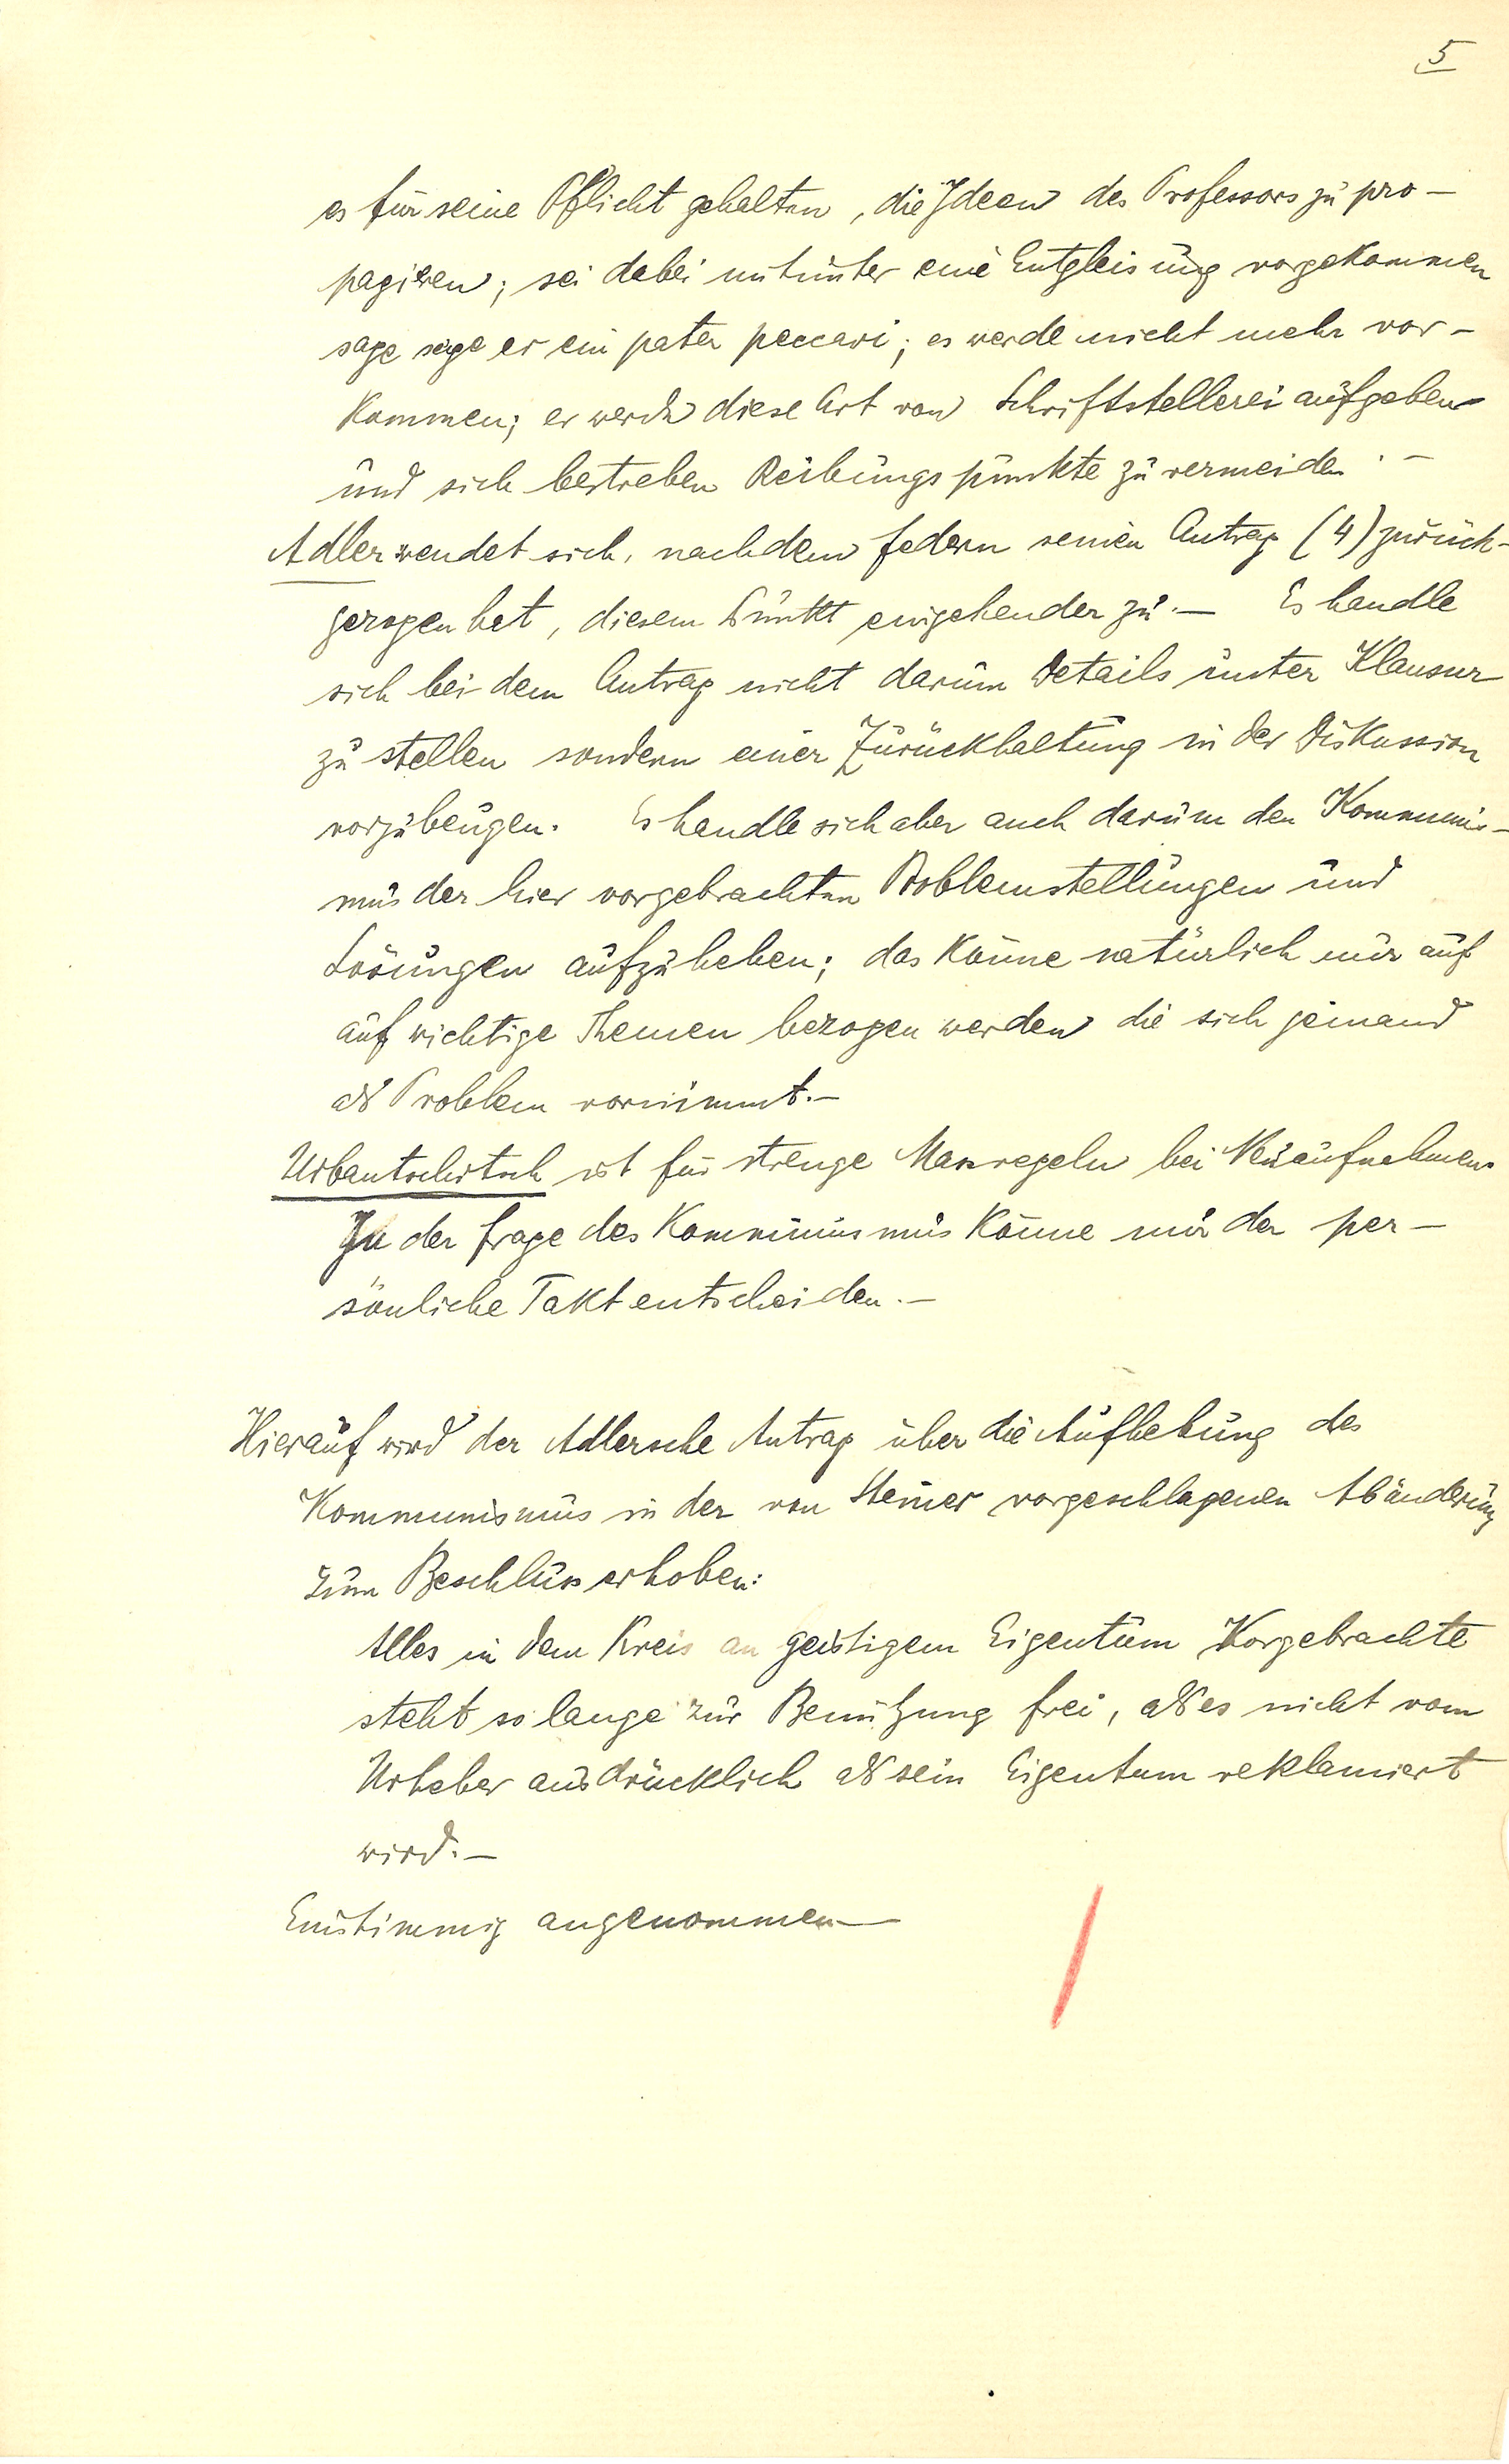 5
es für seine Pflicht gehalten, die Ideen des Professors zu pro-
pagiren; sei dabei mitunter eine Entgleisung vorgekommen
sage sage er ein pater peccavi; es werde nicht mehr vor-
kommen; er werde diese Art von Schriftstellerei aufgeben
und sich bestreben Reibungspunkte zu vermeiden. -
Adler wendet sich, nachdem Federn seinen Antrag (4) zurück-
gezogen hat, diesem Punkt eingehender zu. - Es handle
sich bei dem Antrag nicht darum Details unter Klausur
zu stellen sondern einer Zurückhaltung in der Diskussion
vorzubeugen. Es handle sich aber auch darum den Kommunis-
mus der hier vorgebrachten Problemstellungen und
Lösungen aufzuheben; das könne natürlich nur auf
auf wichtige Themen bezogen werden die sich jemand
als Problem vornimmt. -
Urbantschitsch ist für strenge Massregeln bei Neuaufnahmen
In der Frage des Kommunismus könne nur der per-
sönliche Takt entscheiden. -
Hierauf wird der Adlersche Antrag über die Aufhebung des
Kommunismus in der von Steiner vorgeschlagenen Abänderung
zum Beschluss erhoben:
Alles in dem Kreis an geistigem Eigentum Vorgebrachte
steht so lange zur Benützung frei, als es nicht vom
Urheber ausdrücklich als sein Eigentum reklamiert
wird. -
Einstimmig angenommen -